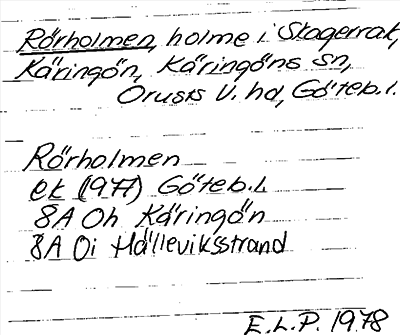 Rörholmen, holme i Skagerrak,
Käringön, Käringöns sn,
Orusts V. hd, Göteb.l.
Rörholmen
ek (1977) Göteb.l.
8A 0h Käringön
8A 0i Hälleviksstrand
E.L.P. 1978